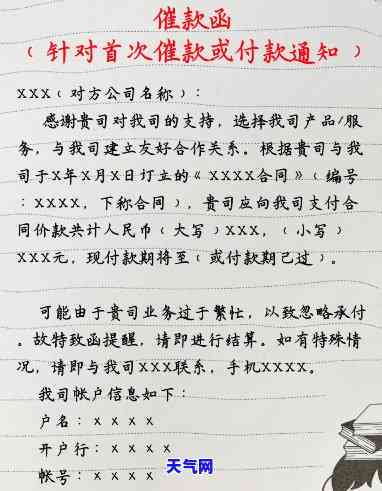 催款函
（针对首次催款或付款通知）
XXX（对方公司名称）：
感谢贵司对我司的支持，选择我司产品/服
务，与我司建立友好合作关系。根据贵司与我
司于X年X月X日订立的《XXXX合同》（编号
：XXXX，下称合同），贵司应向我司支付合
同价款共计人民币（大写）XXX，（小写）
XXX元，现付款期将至（或付款期已过）。
可能由于贵司业务过于繁忙，以致忽略承付
。故特致函提醒，请即进行结算。如有特殊情
况，请即与我司XXX联系，手机XXXX。
我司帐户信息如下：
户名：X X X X
开户行：X X X X
帐号：X X X X
天气网